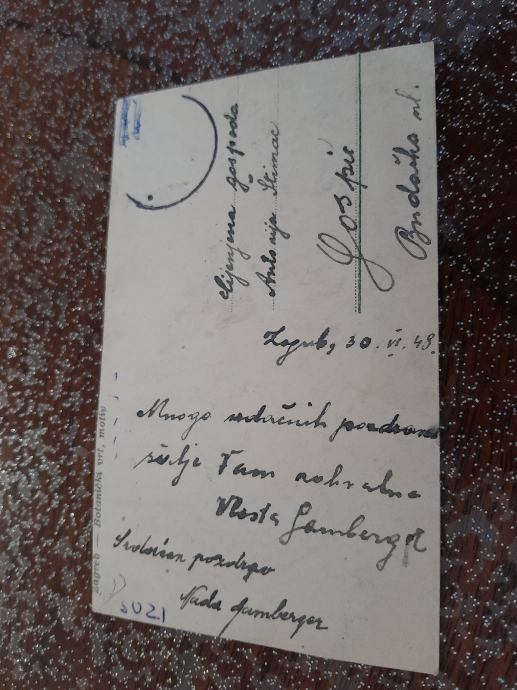 Cijenjena gospođa
Antonija Štimac
Gospić
Budačka ul.
Zagreb, 30. VI. 48.
Mnogo srdačnih pozdrava
šalje Vam
Vlasta Gamberger
Srdačan pozdrav
Nada Gamberger
Zagreb — Botanički vrt, motiv